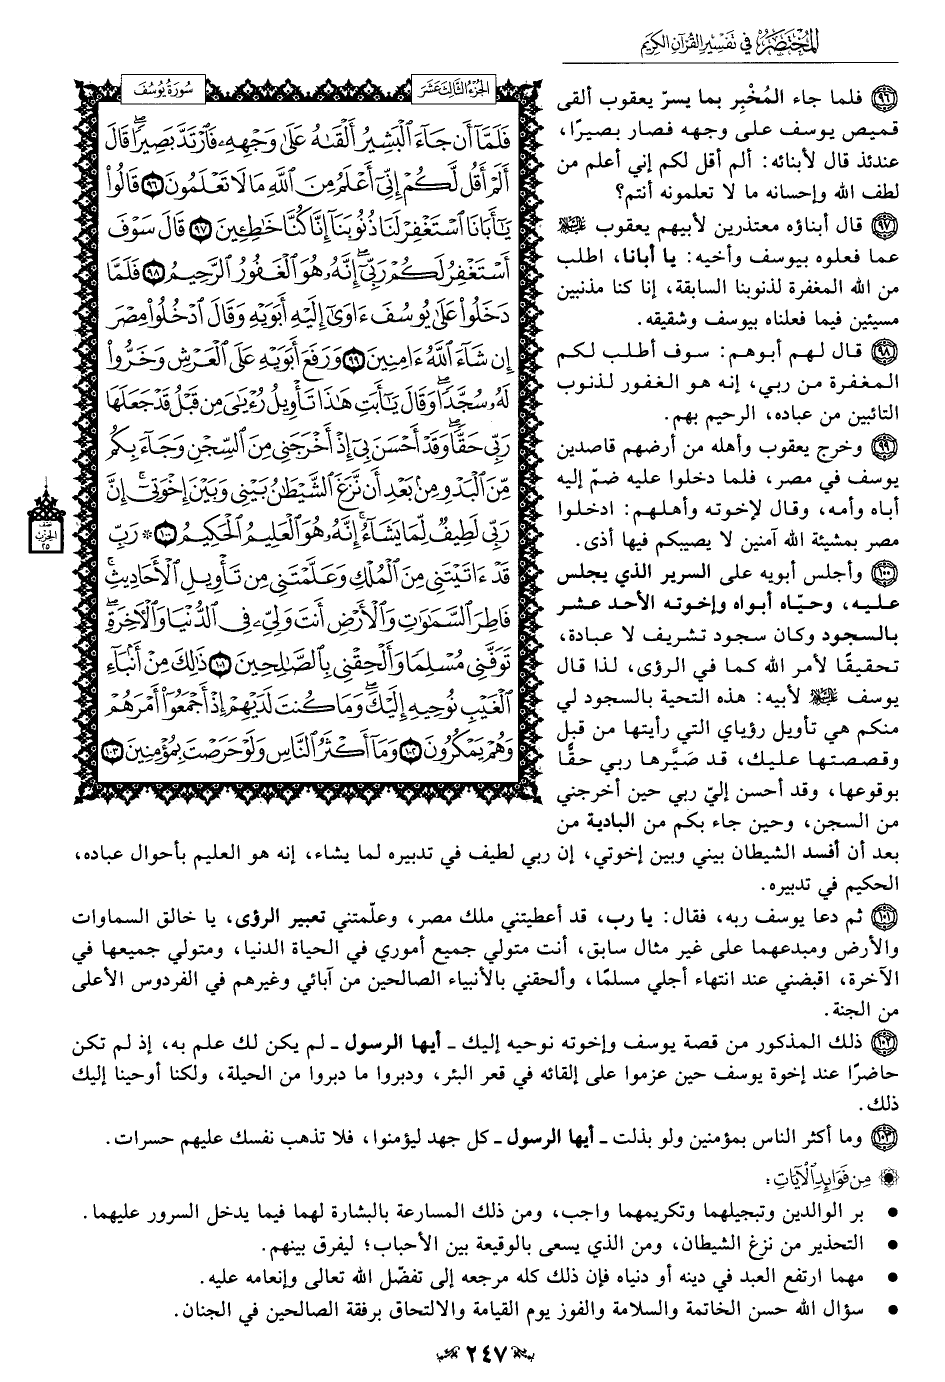 المختصر في تفسير القرآن الكريم
الجزء الثالث عشر
سورة يوسف
فَلَمَّا أَن جَاءَ الْبَشِيرُ أَلْقَىٰهُ عَلَىٰ وَجْهِهِ فَارْتَدَّ بَصِيرًا قَالَ
أَلَمْ أَقُل لَّكُمْ إِنِّي أَعْلَمُ مِنَ اللَّهِ مَا لَا تَعْلَمُونَ ٩٦ قَالُوا
يَا أَبَانَا اسْتَغْفِرْ لَنَا ذُنُوبَنَا إِنَّا كُنَّا خَاطِئِينَ ٩٧ قَالَ سَوْفَ
أَسْتَغْفِرُ لَكُمْ رَبِّي إِنَّهُ هُوَ الْغَفُورُ الرَّحِيمُ ٩٨ فَلَمَّا
دَخَلُوا عَلَىٰ يُوسُفَ ءَاوَىٰ إِلَيْهِ أَبَوَيْهِ وَقَالَ ادْخُلُوا مِصْرَ
إِن شَاءَ اللَّهُ ءَامِنِينَ ٩٩ وَرَفَعَ أَبَوَيْهِ عَلَى الْعَرْشِ وَخَرُّوا
لَهُ سُجَّدًا وَقَالَ يَا أَبَتِ هَٰذَا تَأْوِيلُ رُءْيَايَ مِن قَبْلُ قَدْ جَعَلَهَا
رَبِّي حَقًّا وَقَدْ أَحْسَنَ بِي إِذْ أَخْرَجَنِي مِنَ السِّجْنِ وَجَاءَ بِكُم
مِّنَ الْبَدْوِ مِن بَعْدِ أَن نَّزَغَ الشَّيْطَانُ بَيْنِي وَبَيْنَ إِخْوَتِي إِنَّ
رَبِّي لَطِيفٌ لِّمَا يَشَاءُ إِنَّهُ هُوَ الْعَلِيمُ الْحَكِيمُ ١٠٠ ۞ رَبِّ
قَدْ ءَاتَيْتَنِي مِنَ الْمُلْكِ وَعَلَّمْتَنِي مِن تَأْوِيلِ الْأَحَادِيثِ
فَاطِرَ السَّمَاوَاتِ وَالْأَرْضِ أَنتَ وَلِيِّ فِي الدُّنْيَا وَالْآخِرَةِ
تَوَفَّنِي مُسْلِمًا وَأَلْحِقْنِي بِالصَّالِحِينَ ١٠١ ذَٰلِكَ مِنْ أَنبَاءِ
الْغَيْبِ نُوحِيهِ إِلَيْكَ وَمَا كُنتَ لَدَيْهِمْ إِذْ أَجْمَعُوا أَمْرَهُمْ
وَهُمْ يَمْكُرُونَ ١٠٢ وَمَا أَكْثَرُ النَّاسِ وَلَوْ حَرَصْتَ بِمُؤْمِنِينَ ١٠٣
نصف
الحزب
٢٥
٩٦ فلما جاء المُخْبِر بما يسرّ يعقوب ألقى
قميص يوسف على وجهه فصار بصيرًا،
عندئذ قال لأبنائه: ألم أقل لكم إني أعلم من
لطف الله وإحسانه ما لا تعلمونه أنتم؟
٩٧ قال أبناؤه معتذرين لأبيهم يعقوب ﵇
عما فعلوه بيوسف وأخيه: يا أبانا، اطلب
من الله المغفرة لذنوبنا السابقة، إنا كنا مذنبين
مسيئين فيما فعلناه بيوسف وشقيقه.
٩٨ قال لهم أبوهم: سوف أطلب لكم
المغفرة من ربي، إنه هو الغفور لذنوب
التائبين من عباده، الرحيم بهم.
٩٩ وخرج يعقوب وأهله من أرضهم قاصدين
يوسف في مصر، فلما دخلوا عليه ضمّ إليه
أباه وأمه، وقال لإخوته وأهلهم: ادخلوا
مصر بمشيئة الله آمنين لا يصيبكم فيها أذى.
١٠٠ وأجلس أبويه على السرير الذي يجلس
عليه، وحيّاه أبواه وإخوته الأحد عشر
بالسجود وكان سجود تشريف لا عبادة،
تحقيقًا لأمر الله كما في الرؤى، لذا قال
يوسف ﵇ لأبيه: هذه التحية بالسجود لي
منكم هي تأويل رؤياي التي رأيتها من قبل
وقصصتها عليك، قد صَيَّرها ربي حقًّا
بوقوعها، وقد أحسن إليّ ربي حين أخرجني
من السجن، وحين جاء بكم من البادية من
بعد أن أفسد الشيطان بيني وبين إخوتي، إن ربي لطيف في تدبيره لما يشاء، إنه هو العليم بأحوال عباده،
الحكيم في تدبيره.
١٠١ ثم دعا يوسف ربه، فقال: يا رب، قد أعطيتني ملك مصر، وعلّمتني تعبير الرؤى، يا خالق السماوات
والأرض ومبدعهما على غير مثال سابق، أنت متولي جميع أموري في الحياة الدنيا، ومتولي جميعها في
الآخرة، اقبضني عند انتهاء أجلي مسلمًا، وألحقني بالأنبياء الصالحين من آبائي وغيرهم في الفردوس الأعلى
من الجنة.
١٠٢ ذلك المذكور من قصة يوسف وإخوته نوحيه إليك ـ أيها الرسول ـ لم يكن لك علم به، إذ لم تكن
حاضرًا عند إخوة يوسف حين عزموا على إلقائه في قعر البئر، ودبروا ما دبروا من الحيلة، ولكنا أوحينا إليك
ذلك.
١٠٣ وما أكثر الناس بمؤمنين ولو بذلت ـ أيها الرسول ـ كل جهد ليؤمنوا، فلا تذهب نفسك عليهم حسرات.
من فوائد الآيات:
• بر الوالدين وتبجيلهما وتكريمهما واجب، ومن ذلك المسارعة بالبشارة لهما فيما يدخل السرور عليهما.
• التحذير من نزغ الشيطان، ومن الذي يسعى بالوقيعة بين الأحباب؛ ليفرق بينهم.
• مهما ارتفع العبد في دينه أو دنياه فإن ذلك كله مرجعه إلى تفضّل الله تعالى وإنعامه عليه.
• سؤال الله حسن الخاتمة والسلامة والفوز يوم القيامة والالتحاق برفقة الصالحين في الجنان.
٢٤٧